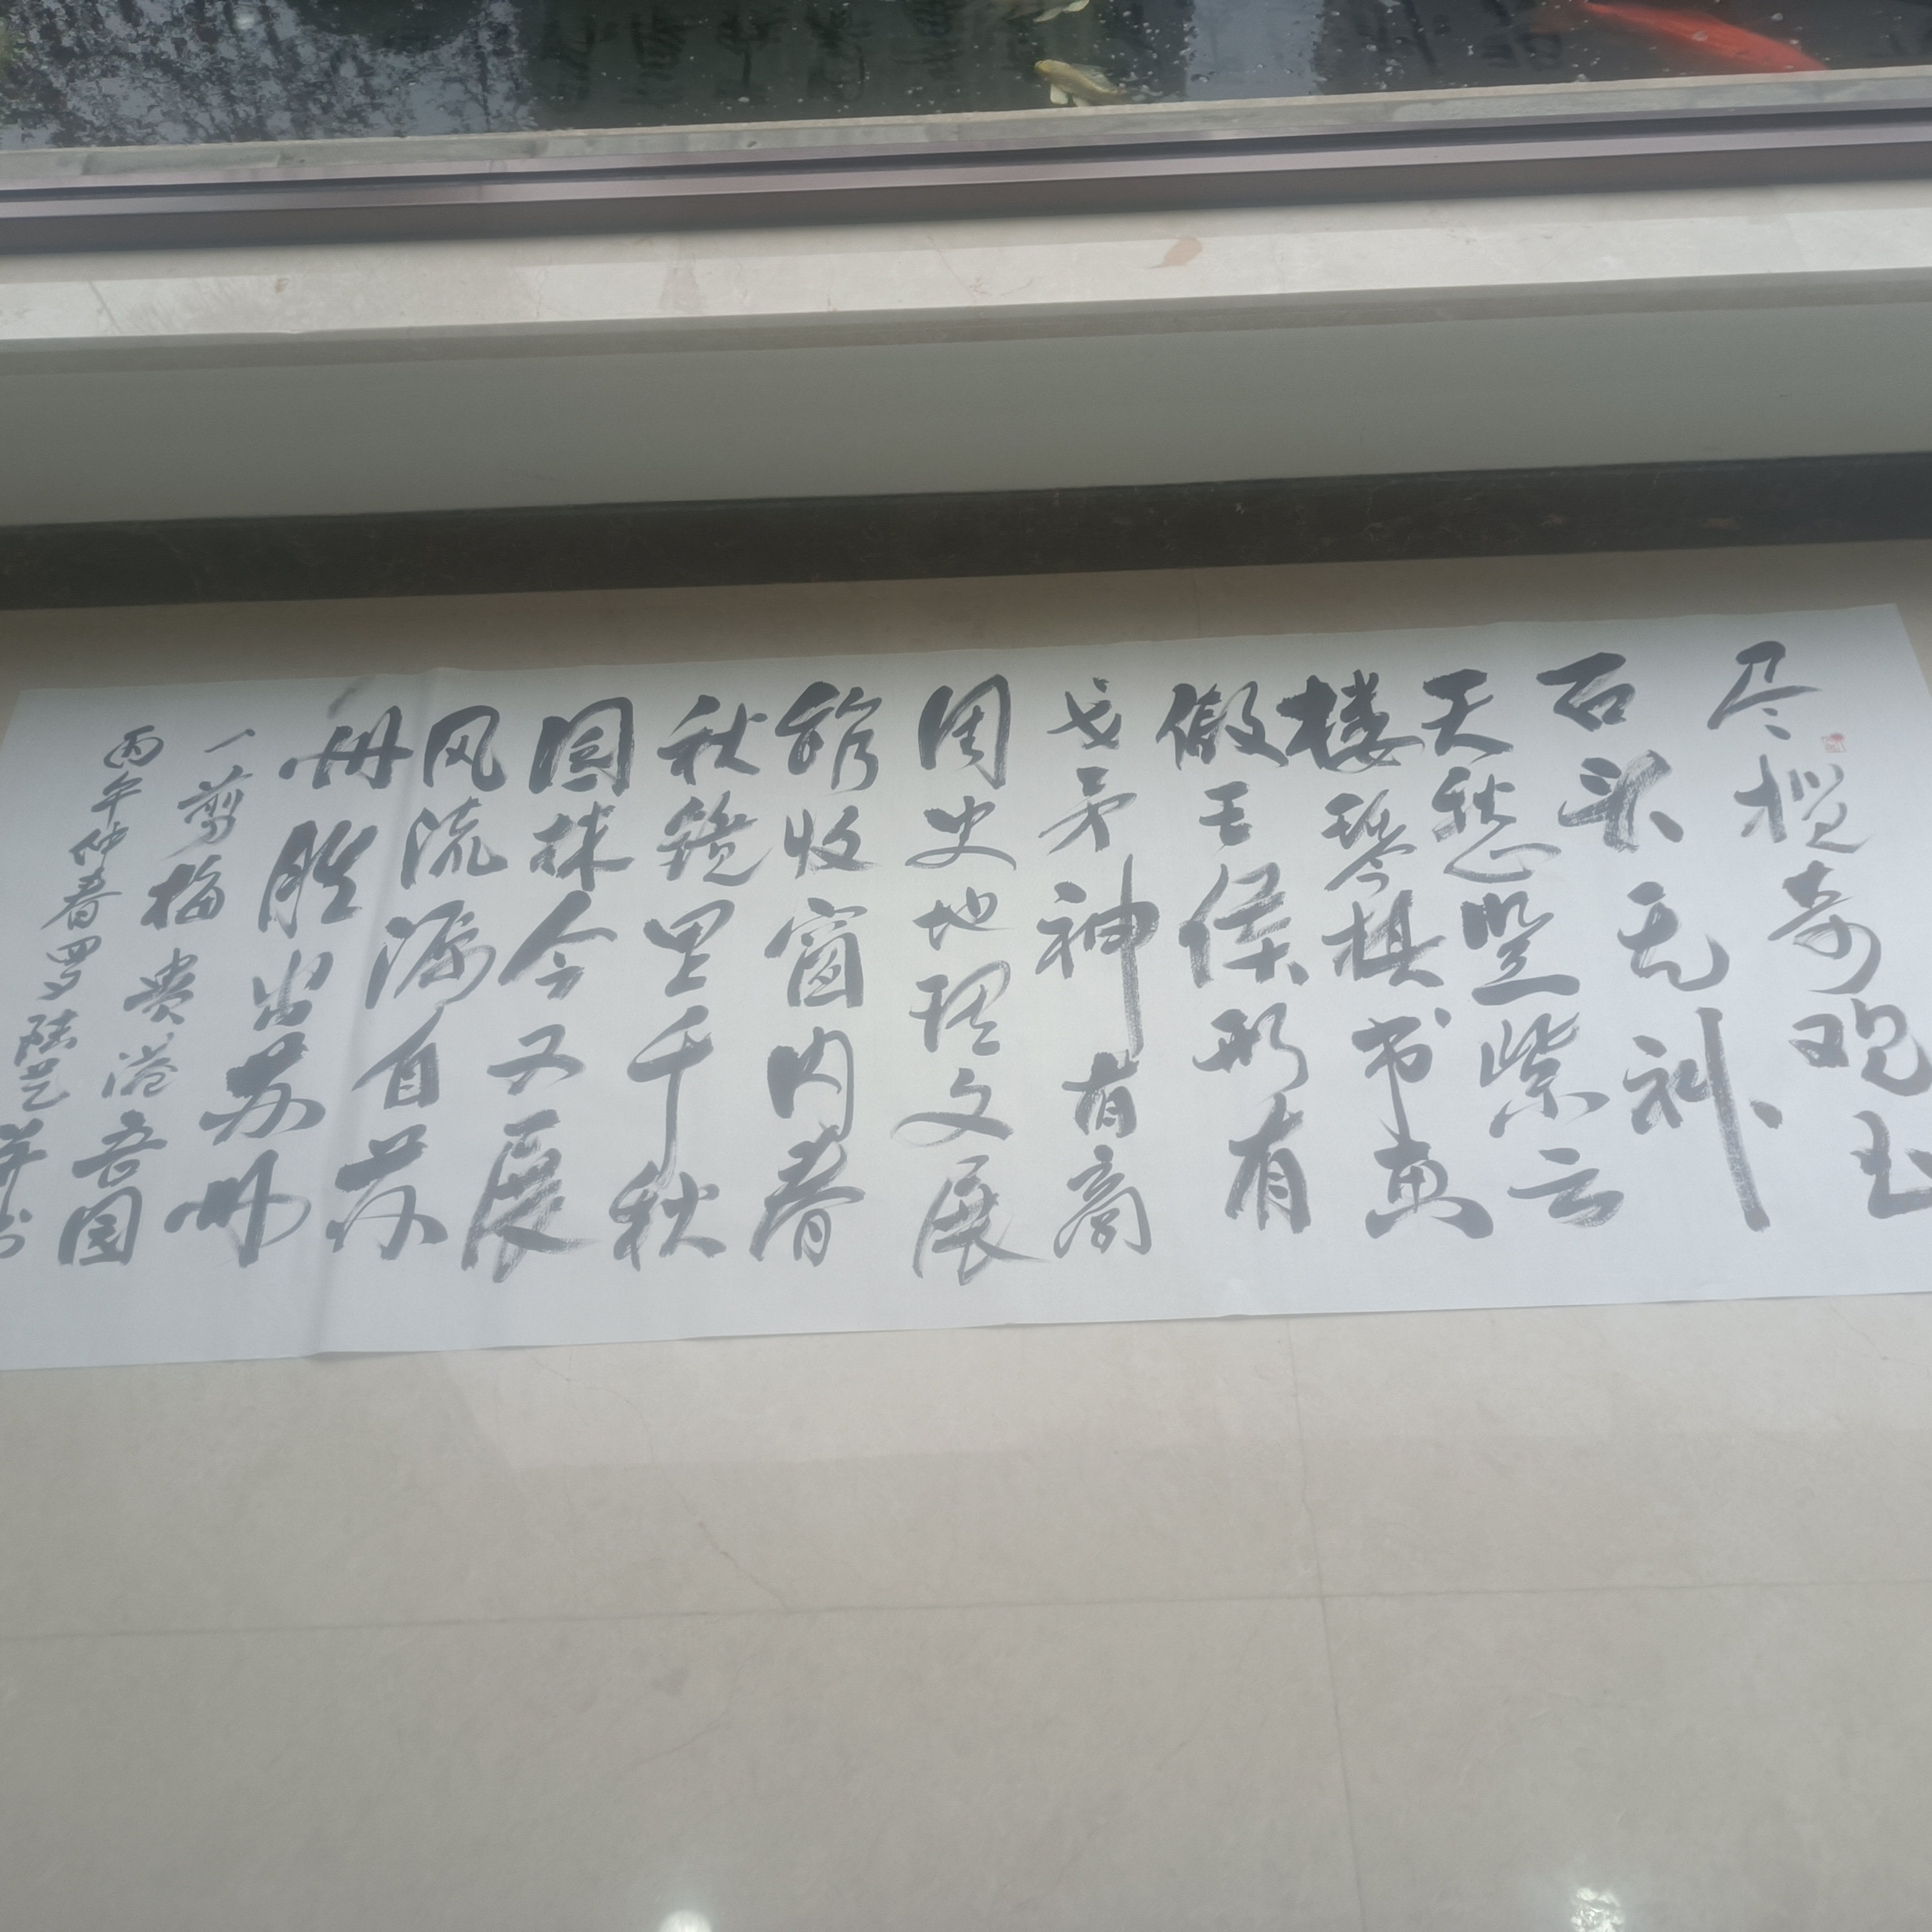 尽揽奇观玉
石头无补
天愁竖紫云
楼琴棋书画
傲王侯形有
戈矛神有商
周史地理文展
馆收窗内春
秋镜里千秋
园林今又展
风流源自苏
州胜出苏州
一剪梅贵港吾园
丙午仲春罗陆艺并书